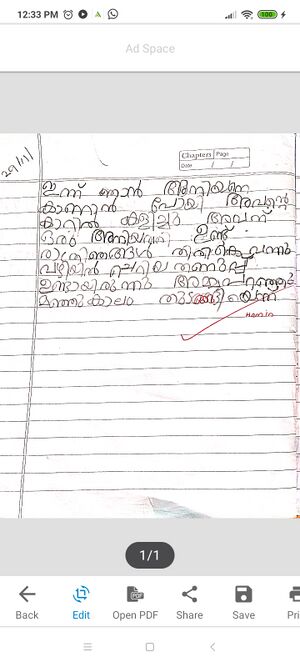 12:33 PM
100
Ad Space
29/11/
Chapters Page
Date / /
ഇന്ന് ഞാൻ അനിയനെ
കാണാൻ പോയി അവന്റെ
കാറിൽ കളിച്ചു അവന്
ഒരു അനിയത്തി ഉണ്ട്
രാത്രി ഞങ്ങൾ തിരികെ വന്നു
വഴിയിൽ ചെറിയ തണുപ്പ്
ഉണ്ടായിരുന്നു അമ്മ പറഞ്ഞു
മഞ്ഞുകാലം തുടങ്ങിയെന്ന്
1/1
Back Edit Open PDF Share Save Pri